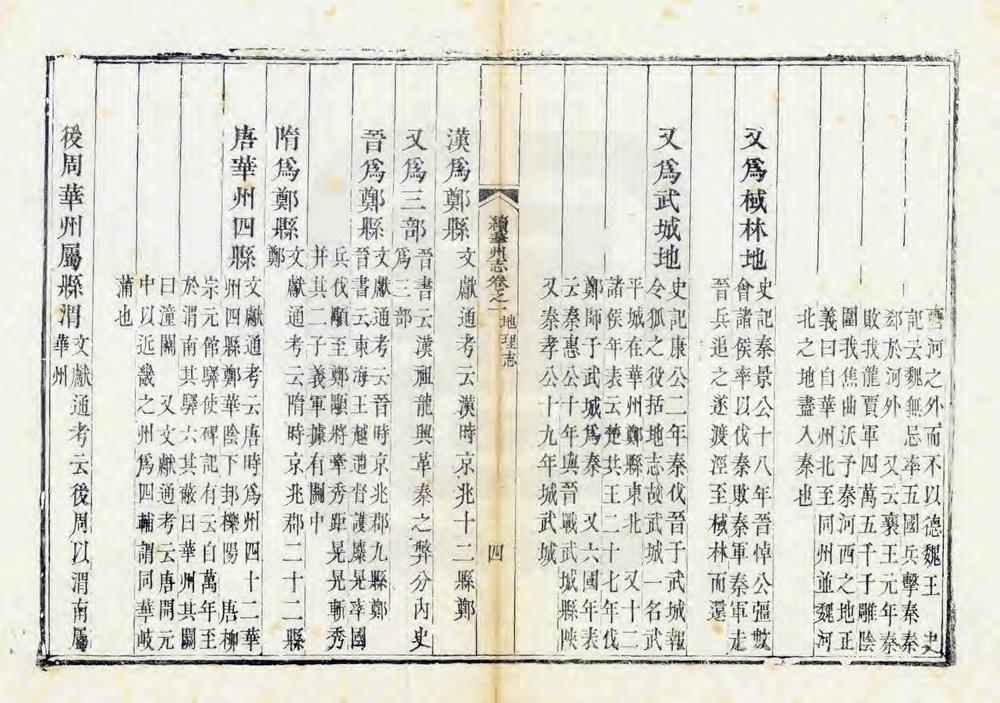 河之外而不以德魏王　史
記云魏無忌率五國兵擊秦秦
郄於河外　又云襄王元年秦
敗我龍賈軍四萬五千于雕陰
圍我焦曲沃予秦河西之地正
義曰自華州北至同州並魏河
北之地盡入秦也
又爲棫林地史記秦景公十八年晉悼公彊數
會諸侯率以伐秦敗秦軍秦軍走
晉兵追之遂渡涇至棫林而還
又爲武城地史記康公二年秦伐晉于武城報
令狐之役括地志故武城一名武
平城在華州鄭縣東北　又十二
諸侯年表云楚共王二十七年伐
鄭師于武城爲秦　又六國年表
云秦惠公十年與晉戰武城縣陝
又秦孝公十九年城武城
續華州志卷之一　地理志　四
漢爲鄭縣文獻通考云漢時京兆十二縣鄭
又爲三部晉書云漢祖龍興革秦之弊分內史
爲三部
晉爲鄭縣文獻通考云晉時京兆郡九縣鄭
晉書云東海王越遣督護麋晃率國
兵伐顒至鄭顒將牽秀距晃晃斬秀
并其二子義軍據有關中
隋爲鄭縣文獻通考云隋時京兆郡二十二縣
鄭
唐華州四縣文獻通考云唐時爲州四十二華
州四縣鄭華陰下邽櫟陽　唐柳
宗元館驛使碑記有云自萬年至
於渭南其驛六其蔽曰華州其關
曰潼關　又文獻通考云唐開元
中以近畿之州爲四輔謂同華岐
蒲也
後周華州屬縣渭文獻通考云後周以渭南屬
華州